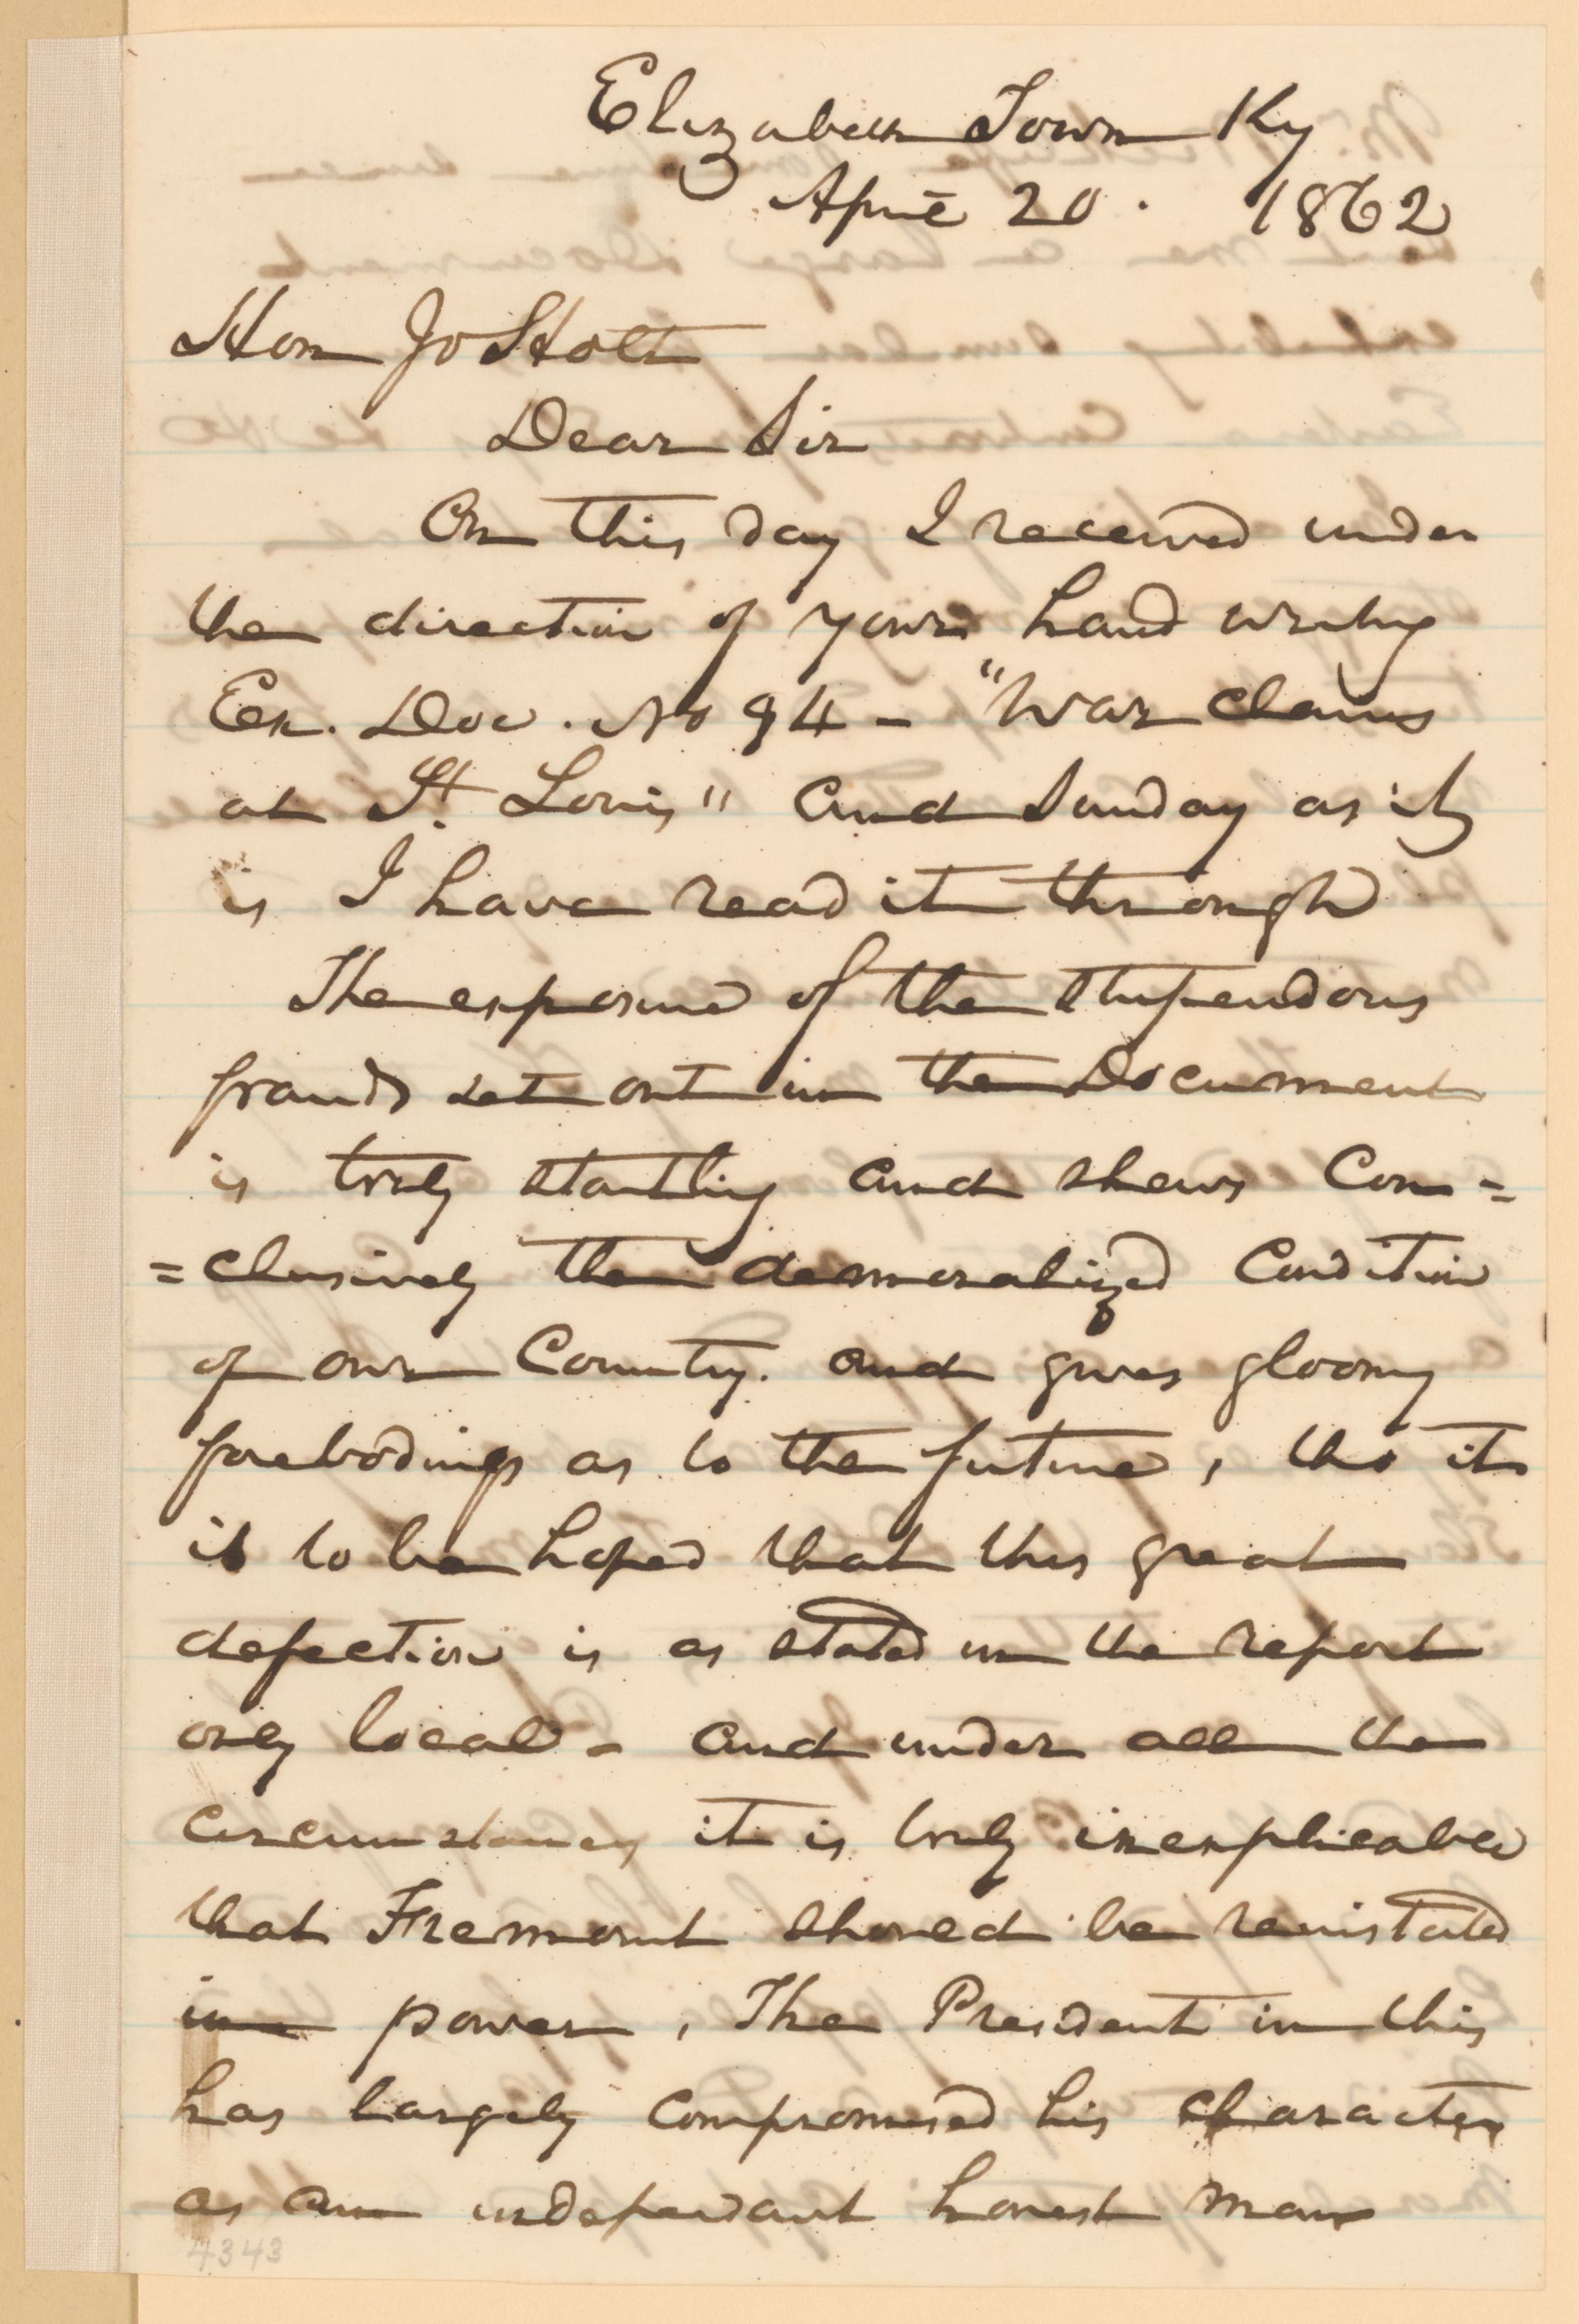 Elizabeth Town Ky
April 20. 1862
Hon Jo Holt
Dear Sir
On this day I received under
the direction of your hand writing
Ex. Doc. No 94 - "War claims
at St. Louis" and Sunday as it
is I have read it through
The exposure of the stupendous
frauds set out in the Document
is truly startling and shews Con=
=clusively the demoralized Condition
of our Country. and gives gloomy
forebodings as to the future, tho it
is to be hoped that this great
defection is as stated in the report
only local - and under all the
circumstances it is truly inexplicable
that Fremont should be reinstated
in power, The President in this
has largely compromised his character
as an independant honest man
4343